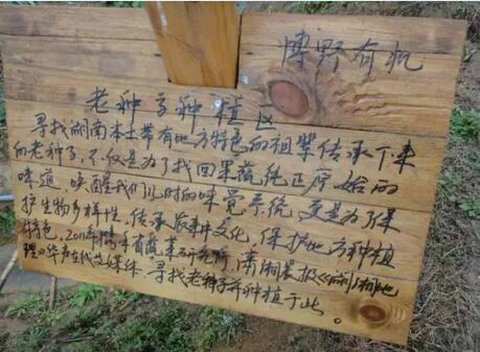 慷野有机
老种子种植区
寻找湖南本土带有地方特色的祖辈传承下来
的老种子，不仅是为了找回果蔬纯正原始的
味道，唤醒我们儿时的味觉系统，更是为了保
护生物多样性，传承农耕文化，保护地方种植
特色，2011年 蔬菜研究所，潇湘晨报《湖湘地
理》华声在线 媒体 寻找老种子并种植于此。